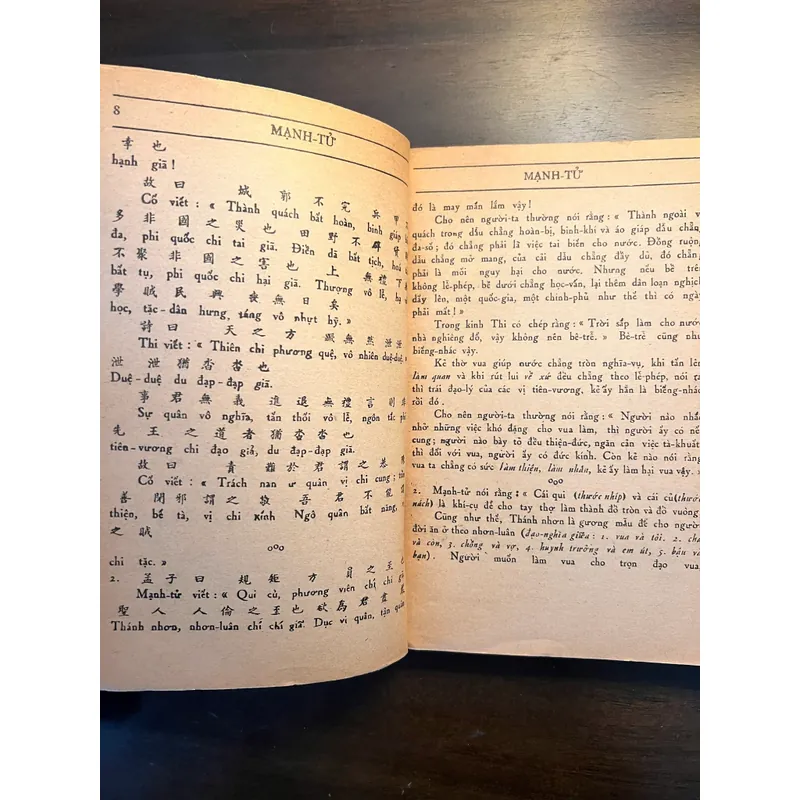 8
MẠNH-TỬ
幸 也
hạnh giã !
故 曰 城 郭 不 完 兵 甲
Cố viết : « Thành quách bất hoàn, binh giáp
多 非 國 之 災 也 田 野 不 辟 貨
đa, phi quốc chi tai giã. Điền dã bất tịch, hoá
不 聚 非 國 之 害 也 上 無 禮 下
bất tụ, phi quốc chi hại giã. Thượng vô lễ, hạ
學 賊 民 興 喪 無 日 矣
học, tặc-dân hưng, táng vô nhựt hỹ. »
詩 曰 天 之 方 蹶 無 然 泄
Thi viết : « Thiên chi phương quệ, vô nhiên duệ-duệ.»
泄 泄 猶 沓 沓 也
Duệ-duệ du đạp-đạp giã.
事 君 無 義 進 退 無 禮 言 則
Sự quân vô nghĩa, tấn thối vô lễ, ngôn tắc phi
先 王 之 道 者 猶 沓 沓 也
tiên-vương chi đạo giả, du đạp-đạp giã.
故 曰 責 難 於 君 謂 之 恭
Cố viết : « Trách nan ư quân vị chi cung ; trần
善 閉 邪 謂 之 敬 吾 君 不 能 謂
thiện, bế tà, vị chi kính Ngô quân bất năng,
之 賊
ooo
chi tặc. »
2. 孟 子 曰 規 矩 方 員 之 至 也
Mạnh-tử viết : « Qui củ, phương viên chí chi giã
聖 人 人 倫 之 至 也 欲 爲 君 盡
Thánh nhơn, nhơn-luân chí chí giã. Dục vi quân, tận quân
MẠNH-TỬ
đó là may mắn lắm vậy !
Cho nên người-ta thường nói rằng : « Thành ngoài v
quách trong dầu chẳng hoàn-bị, binh-khí và áo giáp dầu chẳn
đa-số ; đó chẳng phải là việc tai biến cho nước. Đồng ruộn
dầu chẳng mở mang, của cải dầu chẳng đầy đủ, đó chẳn
phải là mối nguy hại cho nước. Nhưng nếu bề trên
không lễ-phép, bề dưới chẳng học-vấn, lại thêm dân loạn nghịch
dấy lên, một quốc-gia, một chính-phủ như thế thì có ngày
phải mất ! »
Trong kinh Thi có chép rằng : « Trời sắp làm cho nước
nhà nghiêng đổ, vậy không nên bê-trễ. » Bê-trễ cũng như
biếng-nhác vậy.
Kẻ thờ vua giúp nước chẳng tròn nghĩa-vụ, khi tấn lên
làm quan và khi rút lui về xứ đều chẳng theo lễ-phép, nói ra
thì trái đạo-lý của các vị tiên-vương, kẻ ấy hẳn là biếng-nhác
rồi đó.
Cho nên người-ta thường nói rằng : « Người nào nhắc
nhở những việc khó đặng cho vua làm, thì người ấy có nế
cung ; người nào bày tỏ đều thiện-đức, ngăn cản việc tà-khuất
thì đối với vua, người ấy có đức kính. Còn kẻ nào nói rằng
vua ta chẳng có sức làm thiện, làm nhân, kẻ ấy làm hại vua vậy. »
ooo
2. Mạnh-tử nói rằng : « Cái qui (thước nhíp) và cái củ(thước
nách) là khí-cụ để cho tay thợ làm thành đồ tròn và đồ vuông
Cũng như thế, Thánh nhơn là gương mẫu để cho người
đời ăn ở theo nhơn-luân (đạo-nghĩa giữa : 1. vua và tôi. 2. cha
và con, 3. chồng và vợ, 4. huynh trưởng và em út, 5. bậu và
bạn). Người muốn làm vua cho trọn đạo vua,